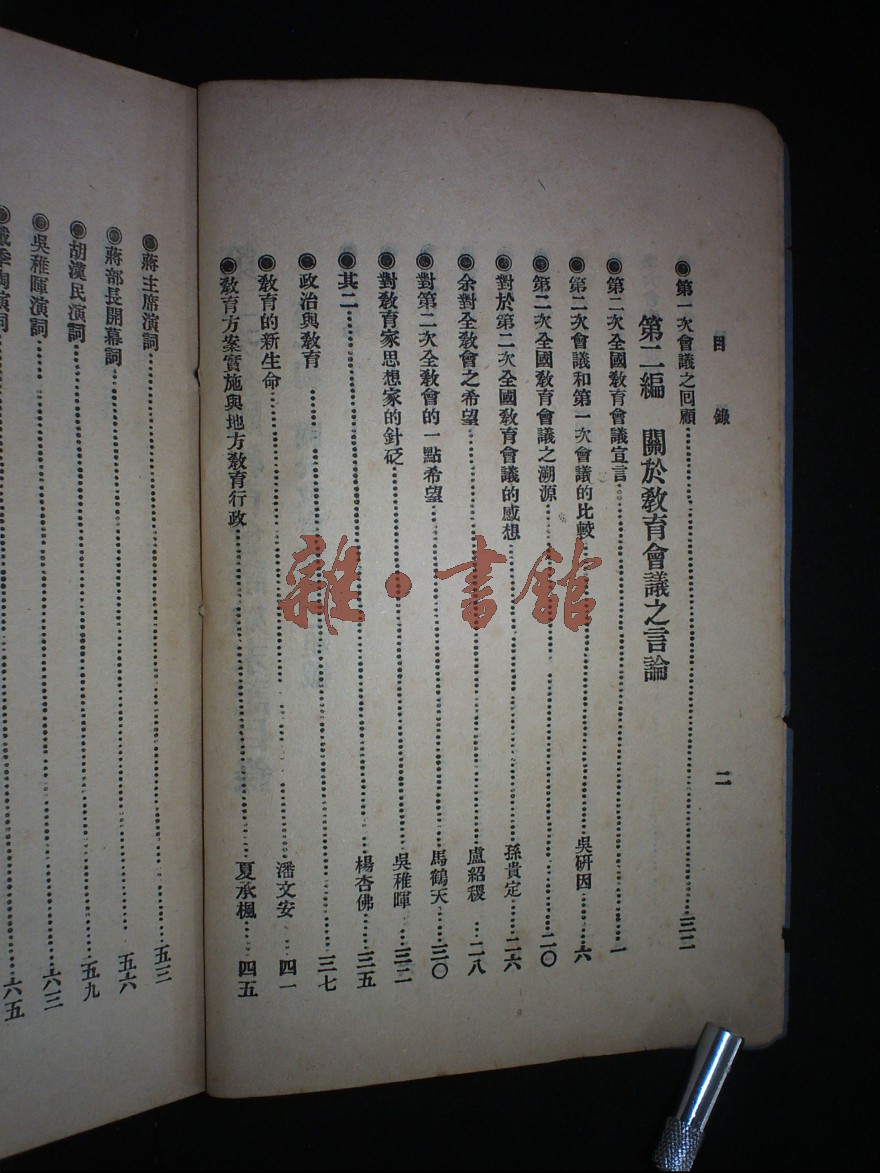 目錄 二
◉第一次會議之回顧……三二
第二編 關於教育會議之言論
◉第二次全國教育會議宣言……一
◉第二次會議和第一次會議的比較……吳研因……六
◉第二次全國教育會議之溯源……二〇
◉對於第二次全國教育會議的感想……孫貴定……二六
◉余對全教會之希望……盧紹稷……二八
◉對第二次全教會的一點希望……馬鶴天……三〇
◉對教育家思想家的針砭……吳稚暉……三二
◉其二……楊杏佛……三五
◉政治與教育……三七
◉教育的新生命……潘文安……四一
◉教育方案實施與地方教育行政……夏承楓……四五
◉蔣主席演詞……五三
◉蔣部長開幕詞……五六
◉胡漢民演詞……五九
◉吳稚暉演詞……六三
◉戴季陶演詞……六五
雜·書館